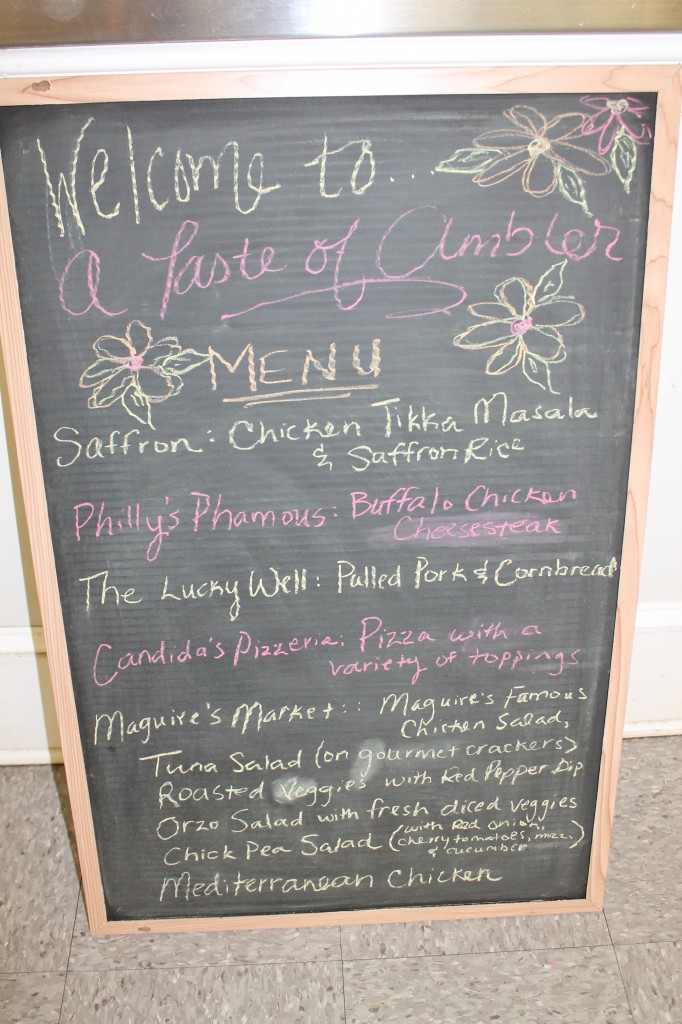 Welcome to...
a Taste of Ambler
MENU
Saffron: Chicken Tikka Masala
& Saffron Rice
Philly's Phamous: Buffalo Chicken
Cheesesteak
The Lucky Well: Pulled Pork & Cornbread
Candida's Pizzeria: Pizza with a
variety of toppings
Maguire's Market:: Maguire's Famous
Chicken Salad,
Tuna Salad (on gourmet crackers)
Roasted Veggies with Red Pepper Dip
Orzo Salad with fresh diced veggies
Chick Pea Salad (with Red onion,
cherry tomatoes, mozz,
& cucumber)
Mediterranean Chicken